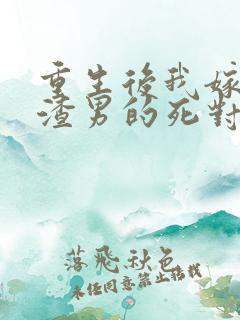 重生後我嫁
渣男的死對
落飛秋色
未任同意禁止搭載